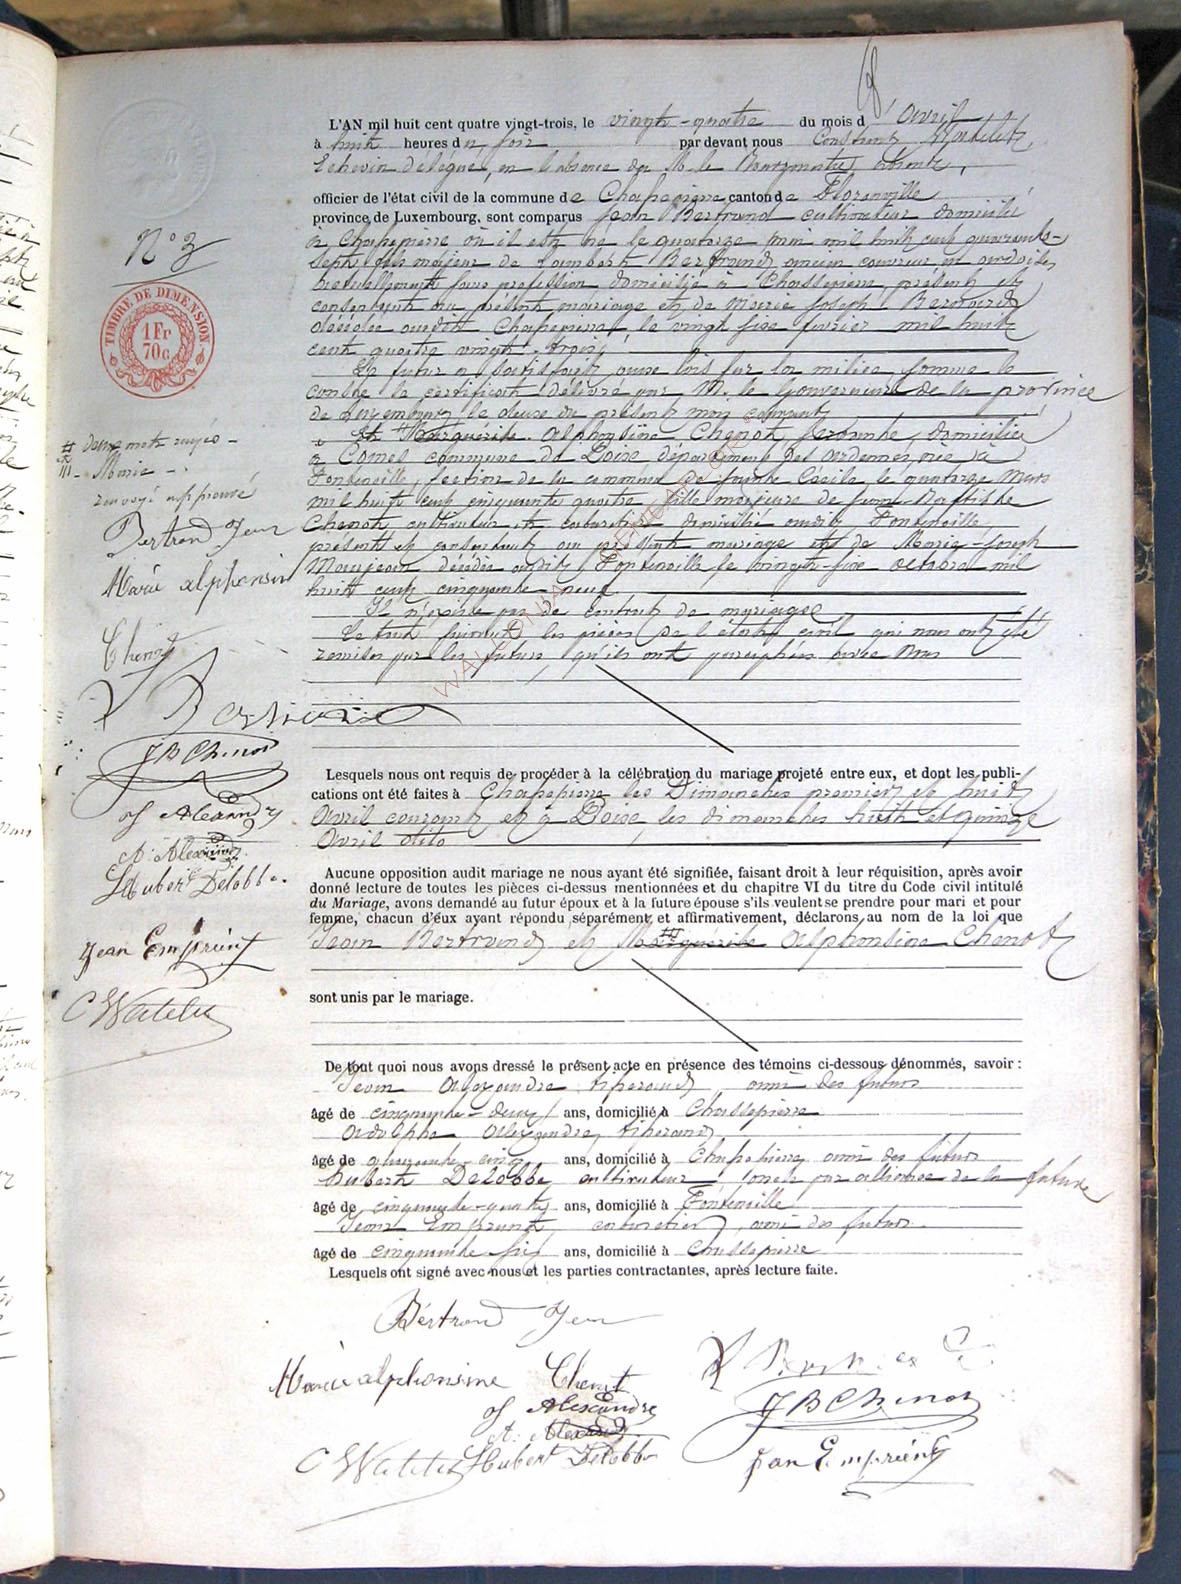 L'AN mil huit cent quatre vingt-trois, le vingt-quatre du mois d'Avril
à huit heures du soir par devant nous Constant Watelet,
Echevin délégué, en l'absence de M. le Bourgmestre,
officier de l'état civil de la commune de Chassepierre canton de Florenville
province de Luxembourg, sont comparus Jean Bertrand cultivateur domicilié
à Chassepierre où il est né le quatorze mai mil huit cent quarante-
sept, fils majeur de Lambert Bertrand ancien couvreur en ardoises
actuellement sans profession domicilié à Chassepierre, présent et
consentant au présent mariage et de Marie Joseph
décédée audit Chassepierre le vingt six février mil huit
cent quatre vingt trois,
Le futur a satisfait aux lois sur la milice comme le
constate le certificat délivré par M. le Gouverneur de la province
de Luxembourg le douze du présent mois courant
Et Marguérite Alphonsine Chenot servante, domiciliée
à commune de département des Ardennes née à
Fontenoille, section de la commune de Sainte Cécile le quatorze Mars
mil huit cent cinquante quatre fille majeure de Jean-Baptiste
Chenot cultivateur et cabaretier domicilié audit Fontenoille
présent et consentant au présent mariage et de Marie-Joseph
décédée audit Fontenoille le vingt-six octobre mil
huit cent cinquante neuf
Il n'existe pas de contrat de mariage
Le tout suivant les pièces de l'état civil qui nous ont été
remises par les futurs, qu'ils ont paraphées avec nous
Lesquels nous ont requis de procéder à la célébration du mariage projeté entre eux, et dont les publi-
cations ont été faites à Chassepierre les Dimanches premier et huit
Avril courant et à les dimanches huit et quinze
Avril dito
Aucune opposition audit mariage ne nous ayant été signifiée, faisant droit à leur réquisition, après avoir
donné lecture de toutes les pièces ci-dessus mentionnées et du chapitre VI du titre du Code civil intitulé
du Mariage, avons demandé au futur époux et à la future épouse s'ils veulent se prendre pour mari et pour
femme, chacun d'eux ayant répondu séparément et affirmativement, déclarons au nom de la loi que
Jean Bertrand et Marguérite Alphonsine Chenot
sont unis par le mariage.
De tout quoi nous avons dressé le présent acte en présence des témoins ci-dessous dénommés, savoir :
Jean Alexandre, ami des futurs
âgé de cinquante-deux ans, domicilié à Chassepierre
Adolphe Alexandre,
âgé de quarante-cinq ans, domicilié à Chassepierre ami des futurs
Hubert Delobbe, cultivateur, oncle par alliance de la future
âgé de cinquante-quatre ans, domicilié à Fontenoille
Jean Emprunt, cabaretier, ami des futurs
âgé de cinquante six ans, domicilié à Chassepierre
Lesquels ont signé avec nous et les parties contractantes, après lecture faite.
Bertrand Jean
Marie alphonsine Chenot
J Alexandre
A. Alexandre
C Watelet Hubert Delobbe
J B Chenot
Jean
N° 3
TIMBRE DE DIMENSION
1 Fr
70 c
deux mots rayés
Marie
renvoi approuvé
Bertrand Jean
Marie alphonsin
Chenot
J B Chenot
J Alexandre
A. Alexandre
Hubert Delobbe.
Jean
C Watelet